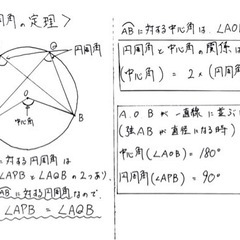 周角の定理>
円周角
Q
O
中心角
B
に対する円周角は
∠APBと∠AQBの2つあり、
ABに対する円周角なので、
∠APB = ∠AQB
ABに対する中心角は、∠AO
円周角と中心角の関係は
(中心角) = 2 × (円周角
A.O.Bが一直線に並ぶ
(弦ABが直径になる時)
中心角(∠AOB) = 180°
円周角(∠APB) = 90°